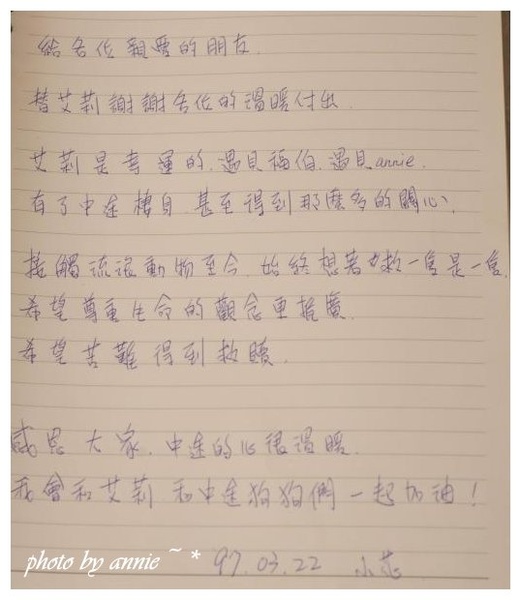 給各位親愛的朋友.
替艾莉謝謝各位的溫暖付出.
艾莉是幸運的.遇見福伯.遇見annie.
有了中途棲身.甚至得到那麼多的關心.
接觸流浪動物至今.始終想著救一隻是一隻.
希望尊重生命的觀念更推廣.
希望苦難得到救贖.
感恩大家.中途的心很溫暖.
我會和艾莉和中途狗狗們一起加油!
photo by annie ~ *
97.03.22 小